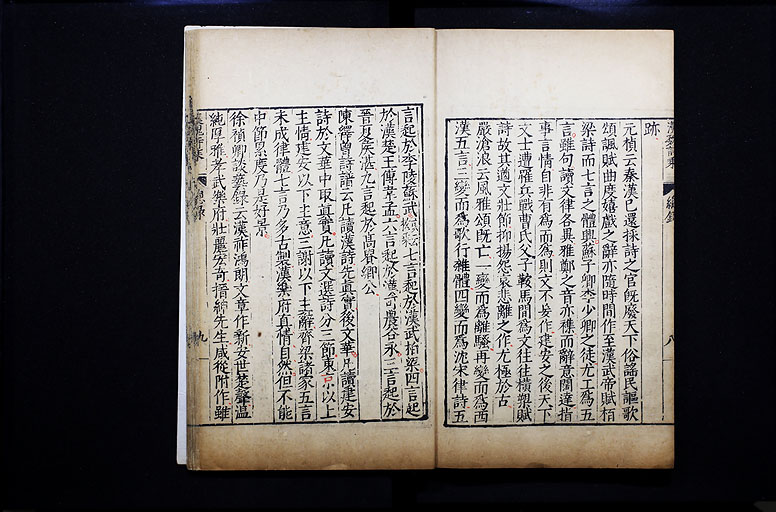 跡
元稹云秦漢已還採詩之官既廢天下俗謠民謳歌
頌諷賦曲度嬉戲之辭亦隨時間作至漢武帝賦柏
梁詩而七言之體興蘇子卿李少卿之徒尤工爲五
言雖句讀文律各異雅鄭之音亦雜而辭意闊達指
事言情自非有爲而爲則文不妄作建安之後天下
文士遭罹兵戰曹氏父子鞍馬間爲文往往橫槊賦
詩故其遒文壯節抑揚怨哀悲離之作尤極於古
嚴滄浪云風雅頌既亡一變而爲離騷再變而爲西
漢五言三變而爲歌行雜體四變而爲沈宋律詩五
言起於李陵蘇武七言起於漢武柏梁四言起
於漢楚王傅韋孟六言起於漢司農谷永三言起於
晉夏侯湛九言起於高貴鄉公
陳繹曾詩譜云凡讀漢詩先真實後文華凡讀建安
詩於文華中取真實凡讀文選詩分三節東京以上
主情建安以下主意三謝以下主辭齊梁諸家五言
未成律體七言乃多古製漢樂府真情自然但不能
中節累度乃是好景
徐禎卿談藝錄云漢祚鴻朗文章作新安世楚聲溫
純厚雅孝武樂府壯麗宏奇搢紳先生咸從附作雖
總錄
八
九